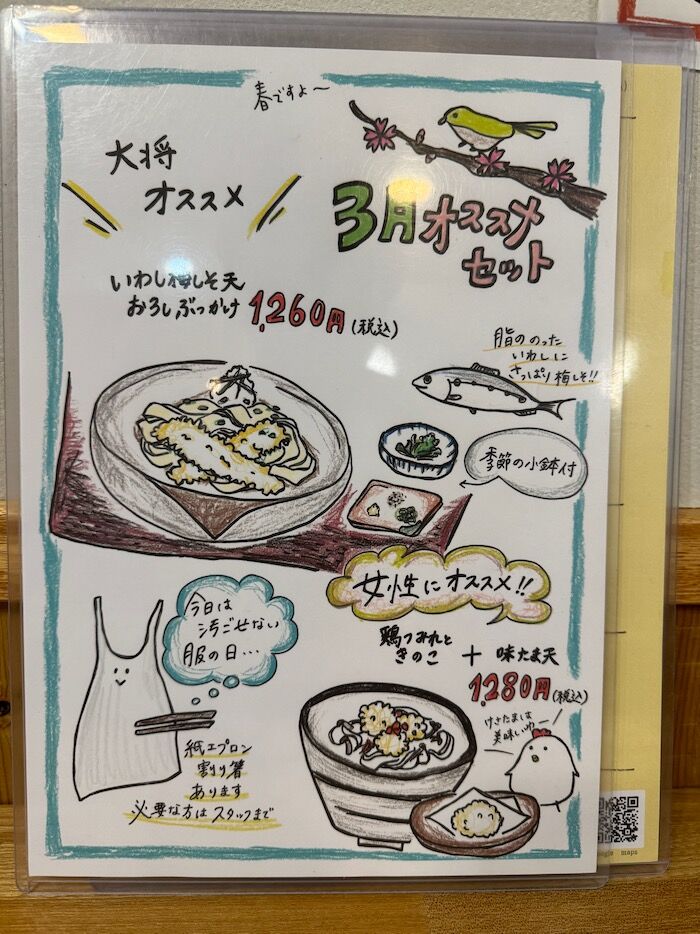 春ですよ〜
大将
オススメ
3月オススメ
セット
いわし梅しそ天
おろしぶっかけ 1,260円(税込)
脂ののった
いわしに
さっぱり梅しそ!!
季節の小鉢付
女性にオススメ!!
鶏つみれと
きのこ + 味たま天
1,280円(税込)
今日は
汚ごせない
服の日…
けさたまは
美味しいわ
紙エプロン
割り箸
あります
必要な方はスタッフまで
maps